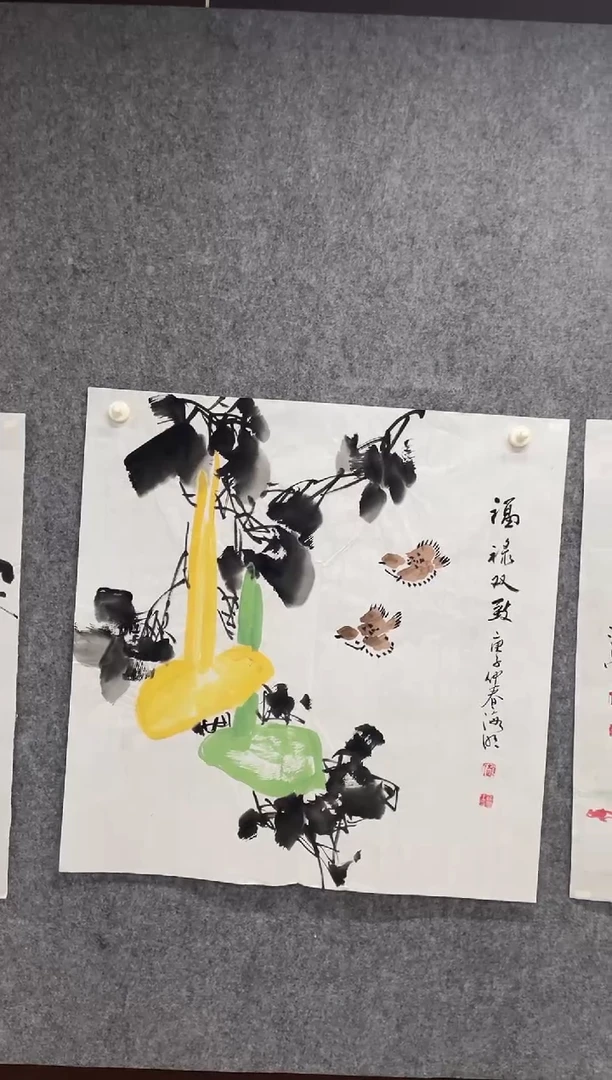 福禄双致
庚子仲春海明